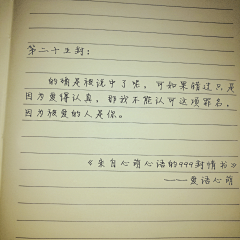 第二十五封：
的确是被说中了呢，可如果错过只是
因为爱得认真，那我不能认可这项罪名，
因为被爱的人是你。
《来自心萌心语的999封情书》
——爱语心萌